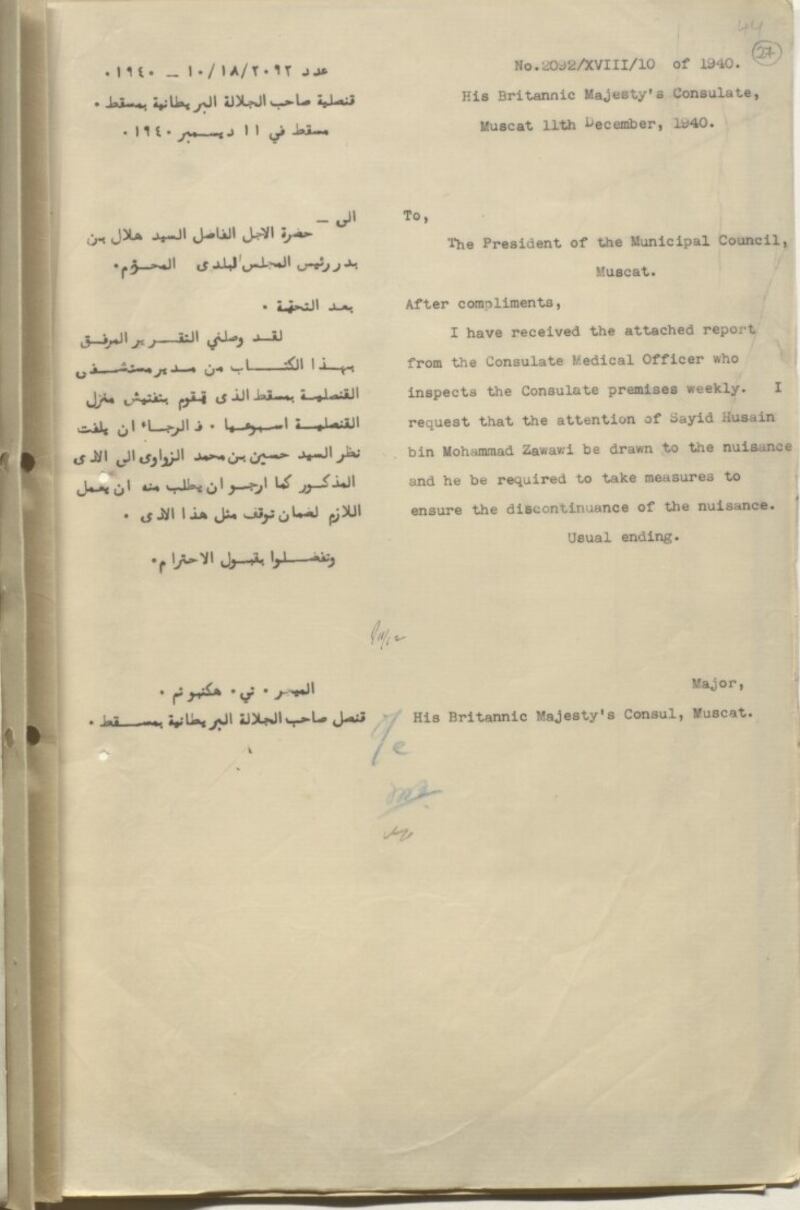 44
27
No.2092/XVIII/10 of 1940.
His Britannic Majesty's Consulate,
Muscat 11th December, 1940.
To,
The President of the Municipal Council,
Muscat.
After compliments,
I have received the attached report
from the Consulate Medical Officer who
inspects the Consulate premises weekly. I
request that the attention of Sayid Husain
bin Mohammad Zawawi be drawn to the nuisance
and he be required to take measures to
ensure the discontinuance of the nuisance.
Usual ending.
Major,
His Britannic Majesty's Consul, Muscat.
عدد ٢٠٩٢/١٨/١٠ – ١٩٤٠.
قنصلية صاحب الجلالة البريطانية بمسقط.
مسقط في ١١ ديسمبر ١٩٤٠.
الى –
حضرة الاجل الفاضل السيد هلال بن
بدر رئيس المجلس البلدى المحترم.
بعد التحية.
لقد وصلني التقرير المرفق
بهذا الكتاب من مدير مستشفى
القنصلية بمسقط الذى يقوم بتفتيش منزل
القنصلية اسبوعيا. فالرجاء ان يلفت
نظر السيد حسين بن محمد الزواوى الى الاذى
المذكور كما ارجو ان يطلب منه ان يعمل
اللازم لضمان توقف مثل هذا الاذى.
وتفضلوا بقبول الاحترام.
الميجر. تي. هكنبوتم.
قنصل صاحب الجلالة البريطانية بمسقط.